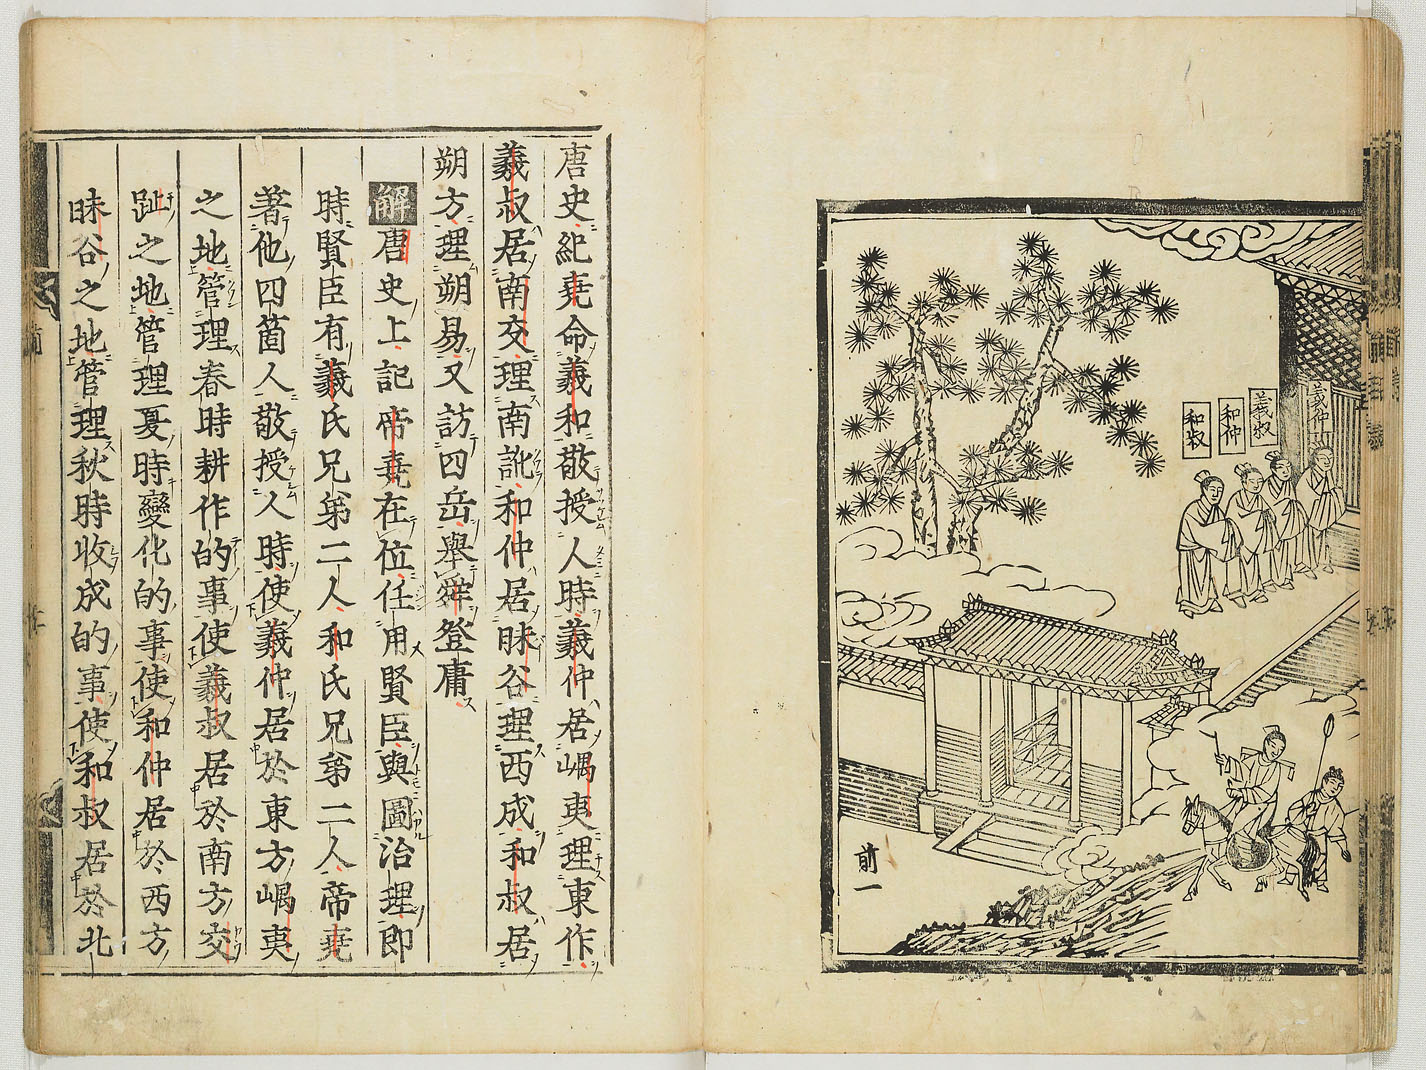 羲仲
羲叔
和仲
和叔
前一
唐史紀堯命羲和敬授人時羲仲居嵎夷理東作
羲叔居南交理南訛和仲居昧谷理西成和叔居
朔方理朔易又訪四岳舉舜登庸
解唐史上記帝堯在位任用賢臣與圖治理即
時賢臣有羲氏兄弟二人和氏兄弟二人帝堯
著他四箇人敬授人時使羲仲居於東方嵎夷
之地管理春時耕作的事使羲叔居於南方交
趾之地管理夏時變化的事使和仲居於西方
昧谷之地管理秋時收成的事使和叔居於北